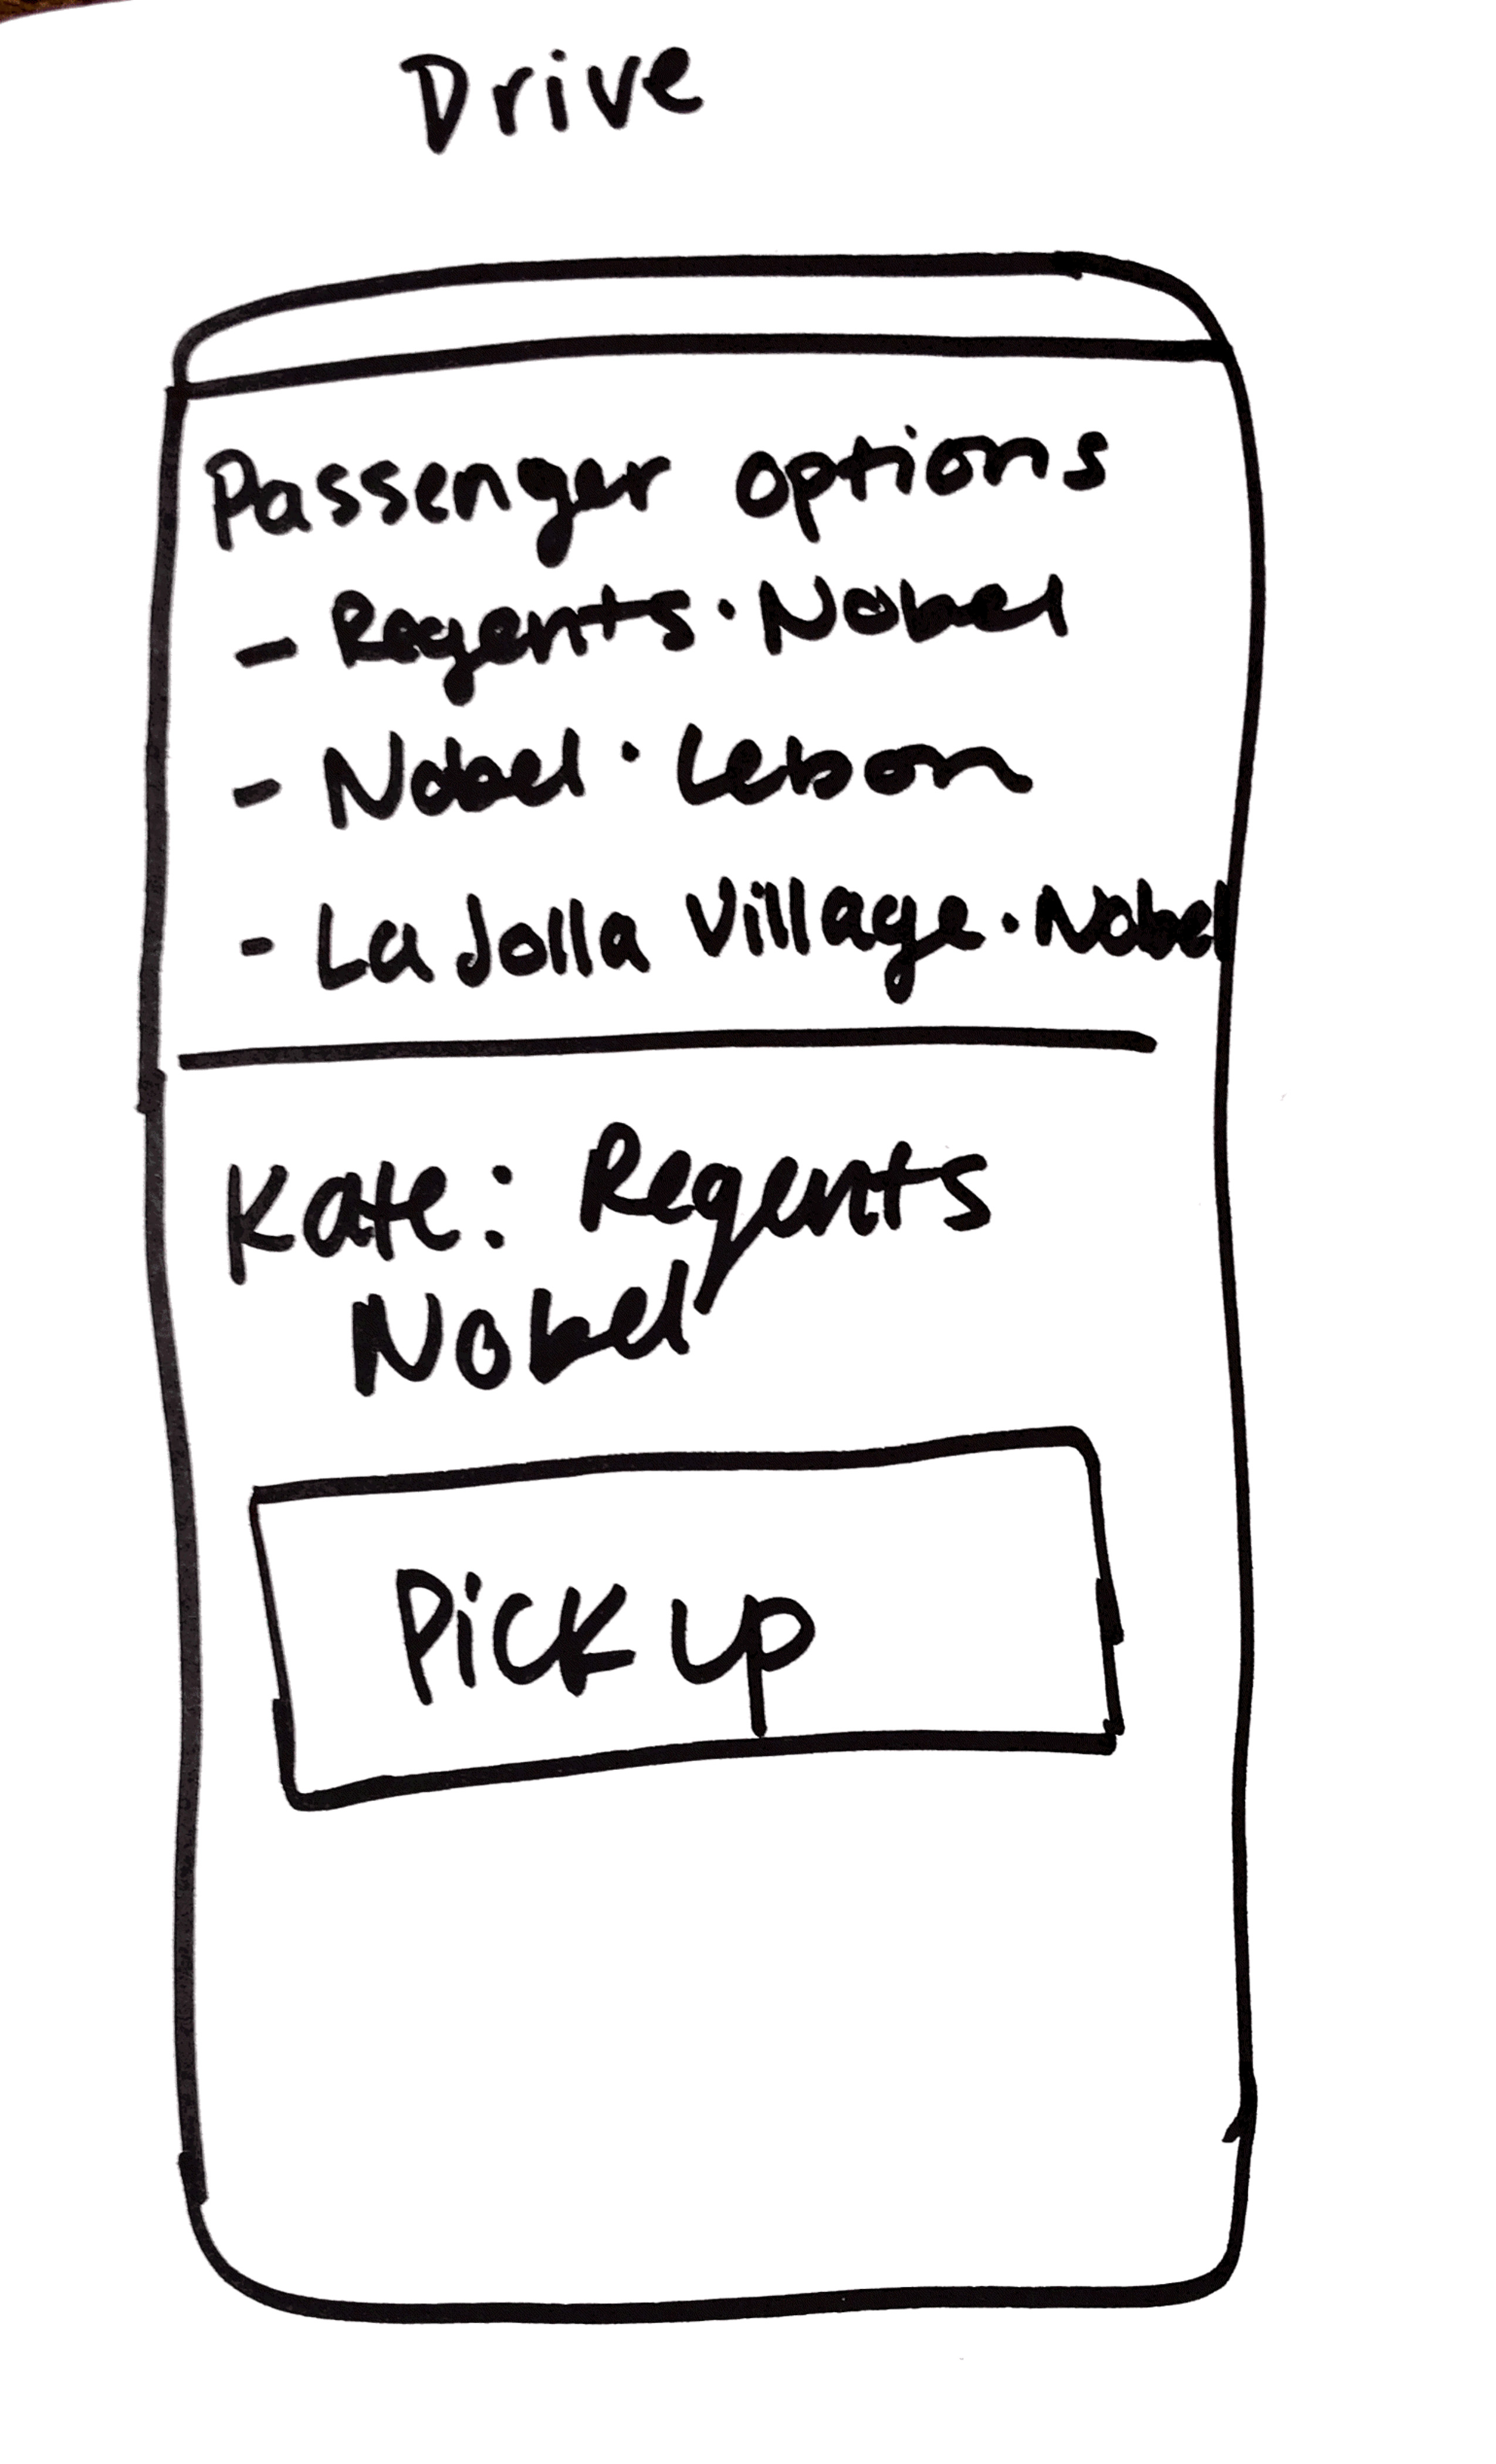 Drive
Passenger options
- Regents · Nobel
- Nobel · Lebon
- La Jolla Village · Nobel
Kate: Regents
Nobel
Pick up